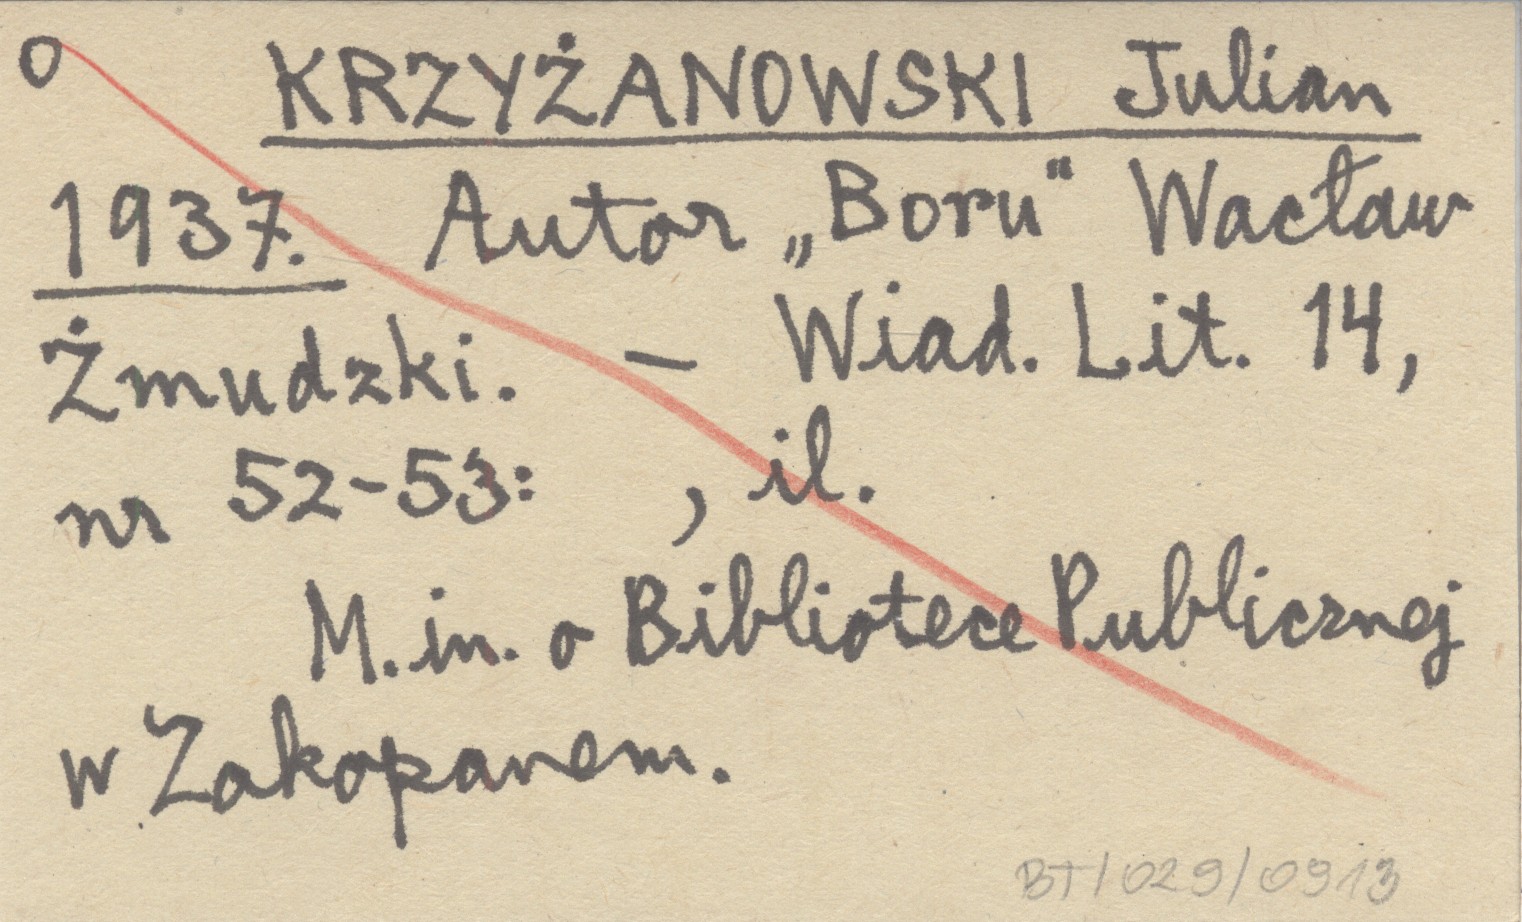 o KRZYŻANOWSKI Julian
1937. Autor „Boru" Wacław
Żmudzki. — Wiad. Lit. 14,
nr 52-53: , il.
M. in. o Bibliotece Publicznej
w Zakopanem.
BT/029/0913